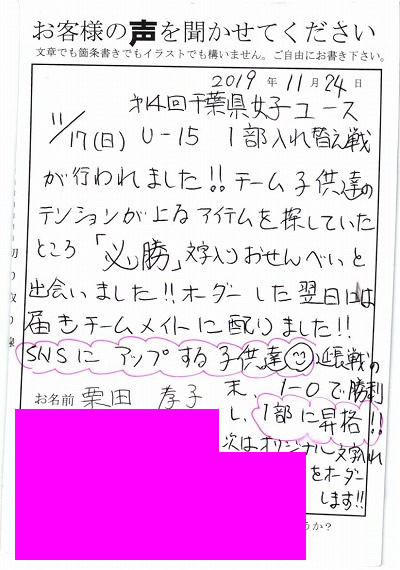 お客様の声を聞かせてください
文章でも箇条書きでもイラストでも構いません。ご自由にお書き下さい。
2019年11月24日
第14回千葉県女子ユース
11/17(日) U-15 1部入れ替え戦
が行われました!!チーム子供達の
テンションが上るアイテムを探していた
ところ「必勝」文字入りおせんべいと
出会いました!!オーダーした翌日には
届きチームメイトに配りました!!
SNSにアップする子供達 延長戦の
末、1-0で勝利
お名前 栗田 孝子
し、1部に昇格!!
次はオリジナル文字入れ
をオーダー
します!!
うか?
切り取り線